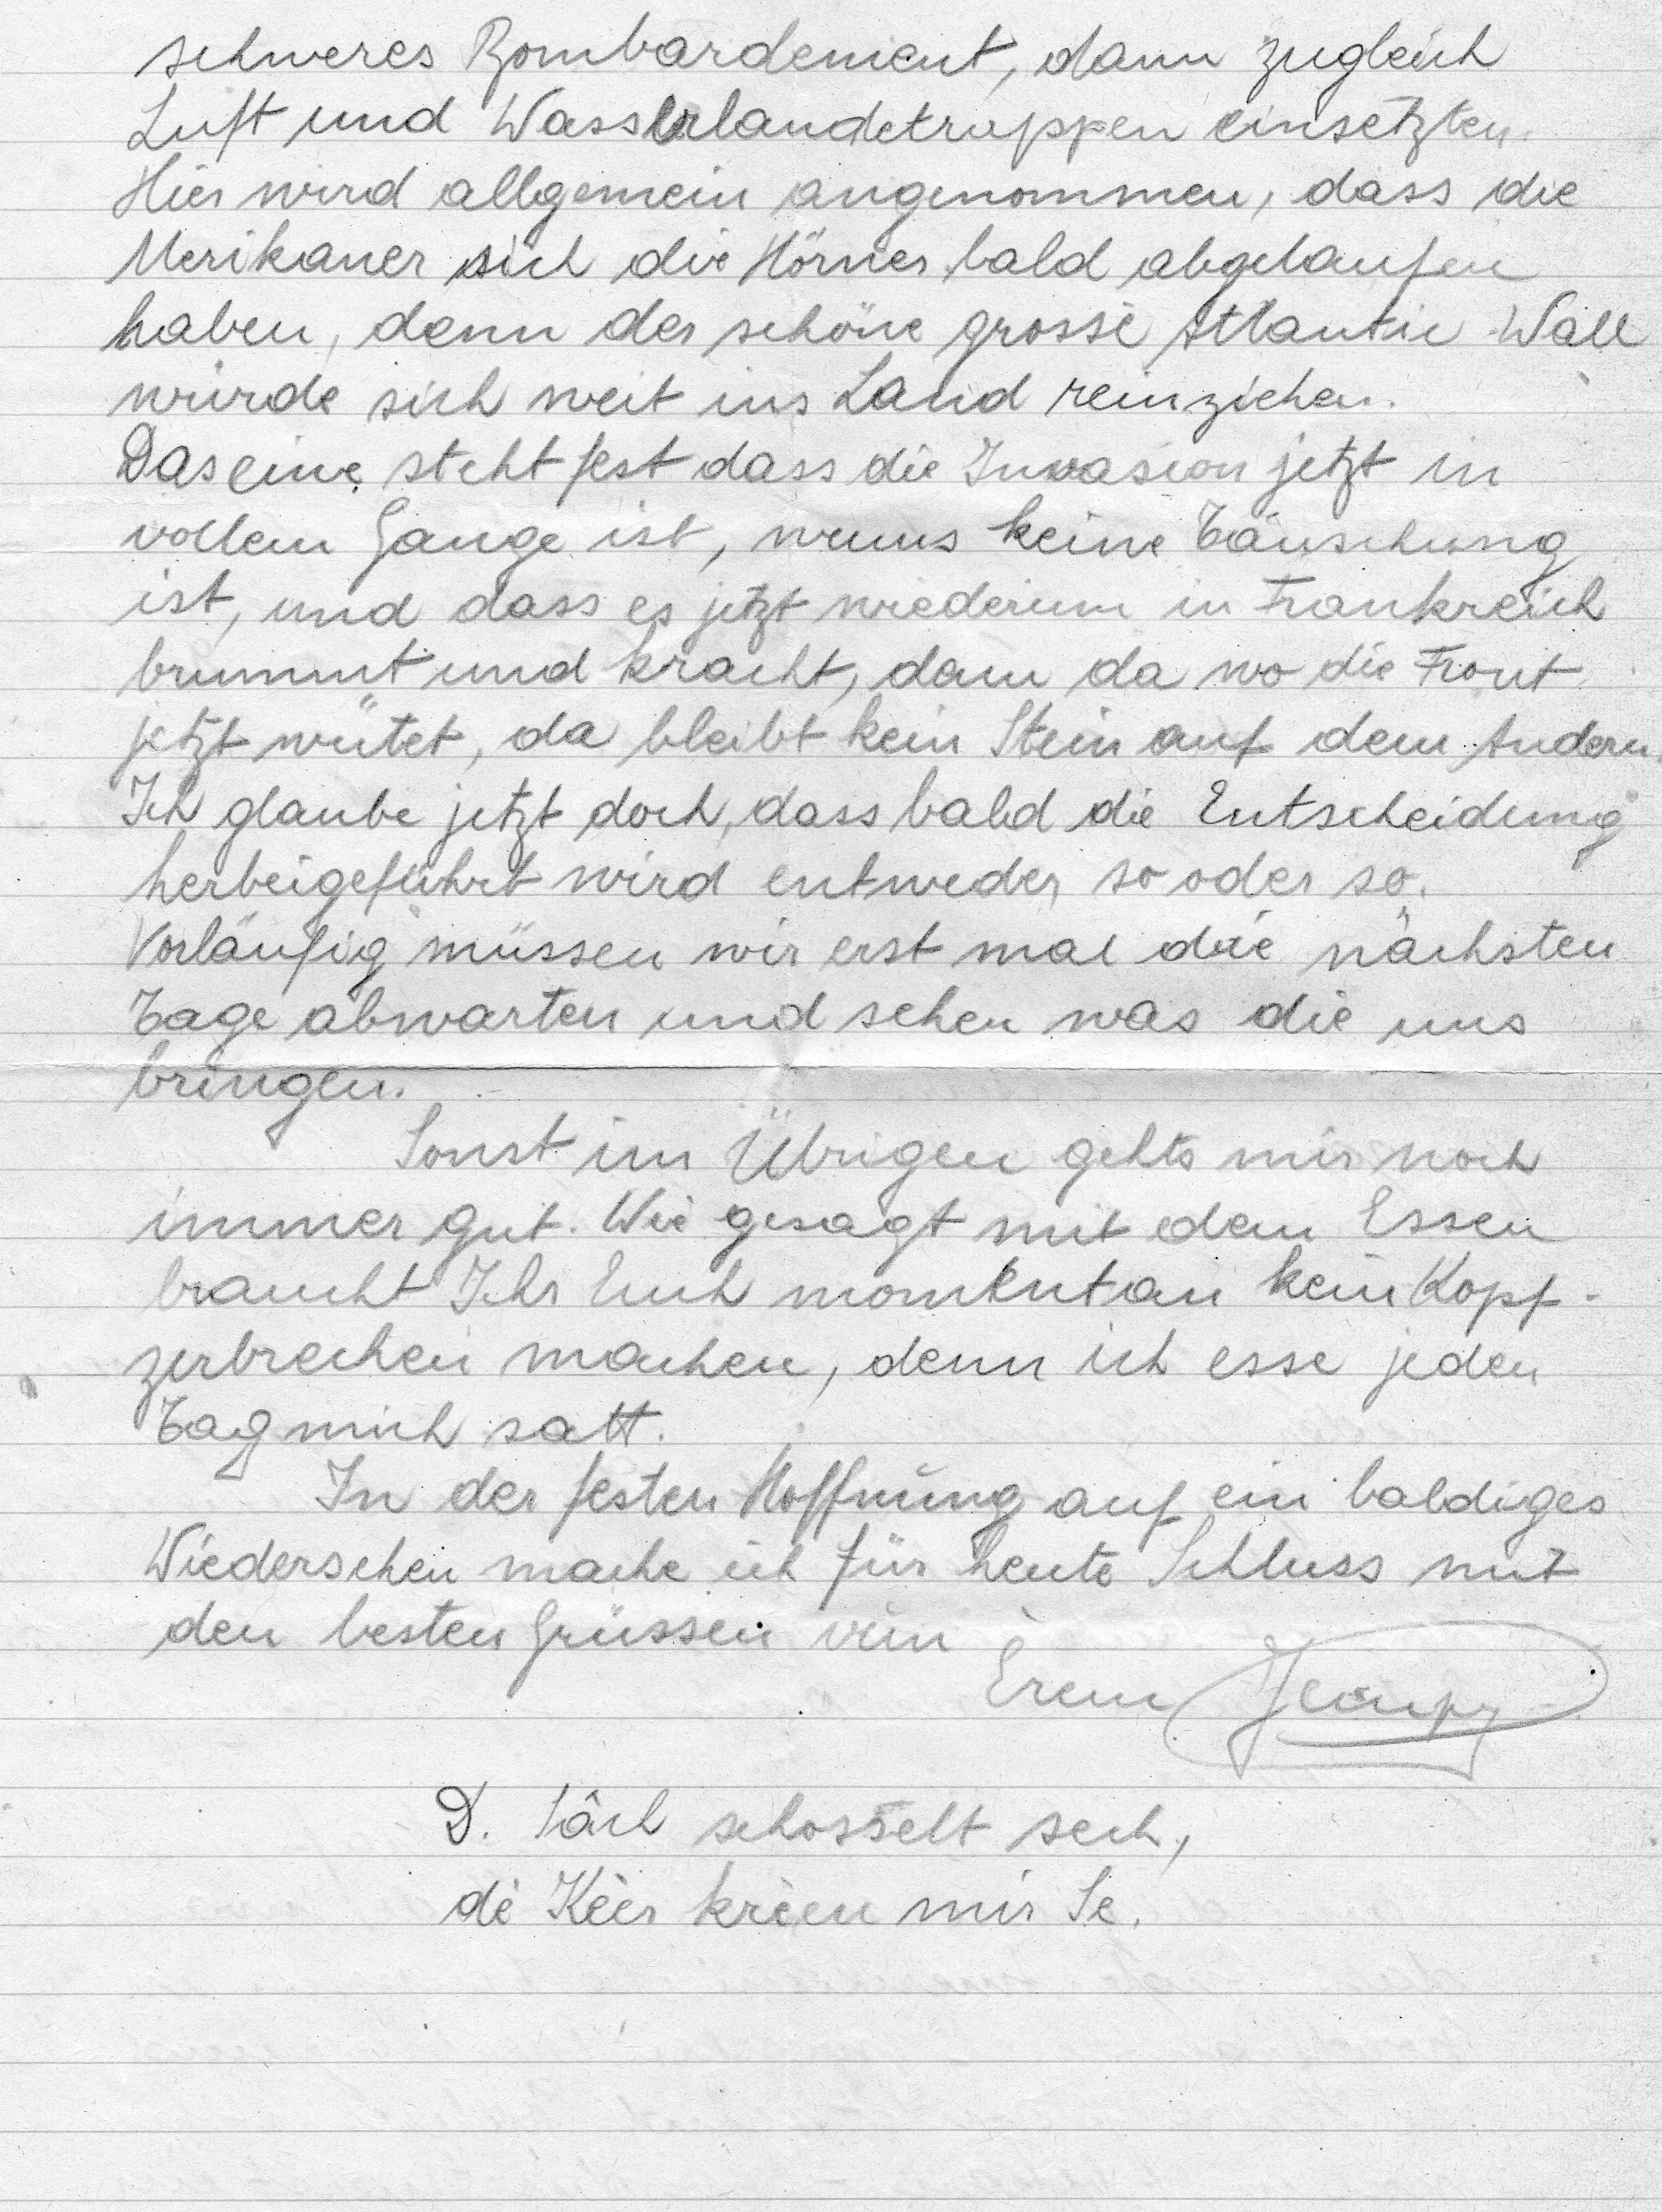 schweres Bombardement, dann zugleich
Luft und Wasserlandetruppen einsetzten.
Hier wird allgemein angenommen, dass die
Merikaner sich die Hörner bald abgelaufen
haben, denn der schöne grosse Atlantic Wall
würde sich weit ins Land reinziehen.
Das eine steht fest dass die Invasion jetzt in
vollem Gange ist, wenns keine Täuschung
ist, und dass es jetzt wiederum in Frankreich
brummt und kracht, dann da wo die Front
jetzt wütet, da bleibt kein Stein auf dem Andern.
Ich glaube jetzt doch, dass bald die Entscheidung
herbeigeführt wird entweder so oder so.
Vorläufig müssen wir erst mal die nächsten
Tage abwarten und sehen was die uns
bringen.
Sonst im Übrigen gehts mir noch
immer gut. Wie gesagt mit dem Essen
braucht Ihr Euch momentan kein Kopf-
zerbrechen machen, denn ich esse jeden
Tag mich satt.
In der festen Hoffnung auf ein baldiges
Wiedersehen mache ich für heute Schluss mit
den besten Grüssen vun
Erem Jempy
D. Säil schosselt sech,
dè Kèer krèen mir Se.